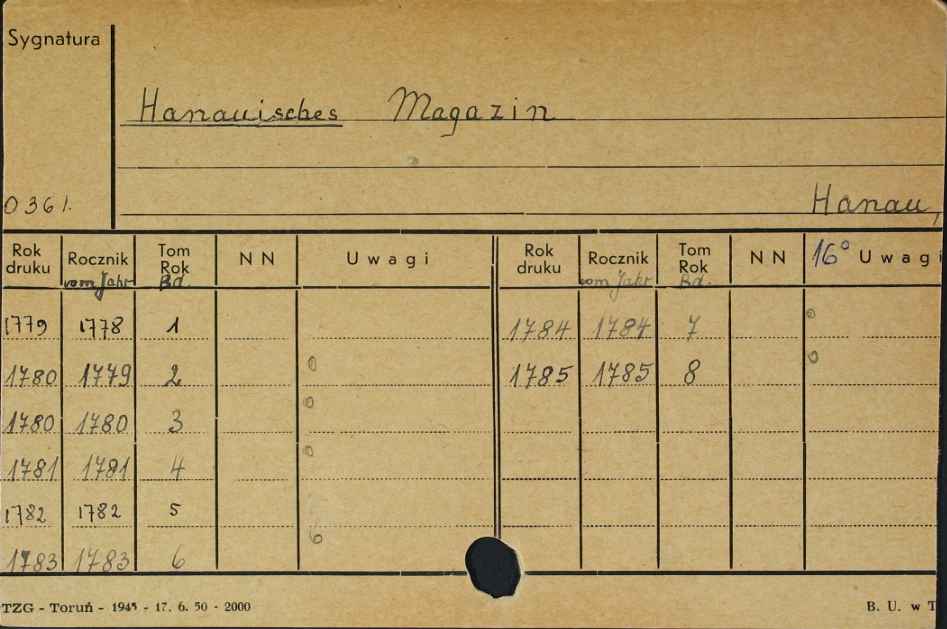 Sygnatura
Hanauisches Magazin
0361.
Hanau,
Rok druku Rocznik vom Jahr Tom Rok Bd. N N Uwagi Rok druku Rocznik vom Jahr Tom Rok Bd. N N 16° Uwagi
1779 1778 1 1784 1784 7 o
1780 1779 2 o 1785 1785 8 o
1780 1780 3 o
1781 1781 4 o
1782 1782 5
1783 1783 6 o
TZG - Toruń - 1945 - 17. 6. 50 - 2000 B. U. w T